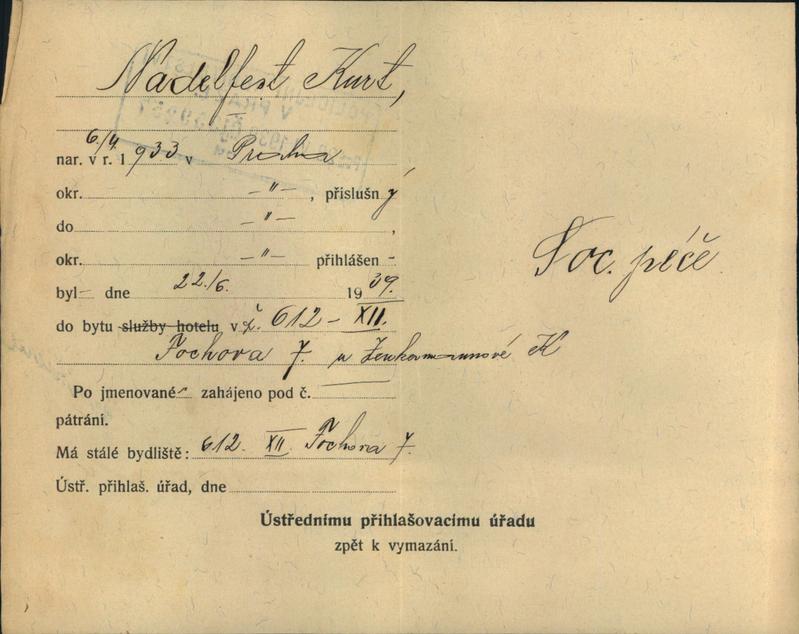 Nadelfest Kurt,
nar. 6/4. v r. 1933 v Praha,
okr. -"-, příslušný
do -"-,
okr. -"- přihlášen-
byl- dne 22./6. 1939.
do bytu služby hotelu v č. 612 - XII.
Fochova 7. u K
Po jmenované- zahájeno pod č.
pátrání.
Má stálé bydliště: 612. XII. Fochova 7.
Ústř. přihlaš. úřad, dne
Ústřednímu přihlašovacímu úřadu
zpět k vymazání.
Soc. péče